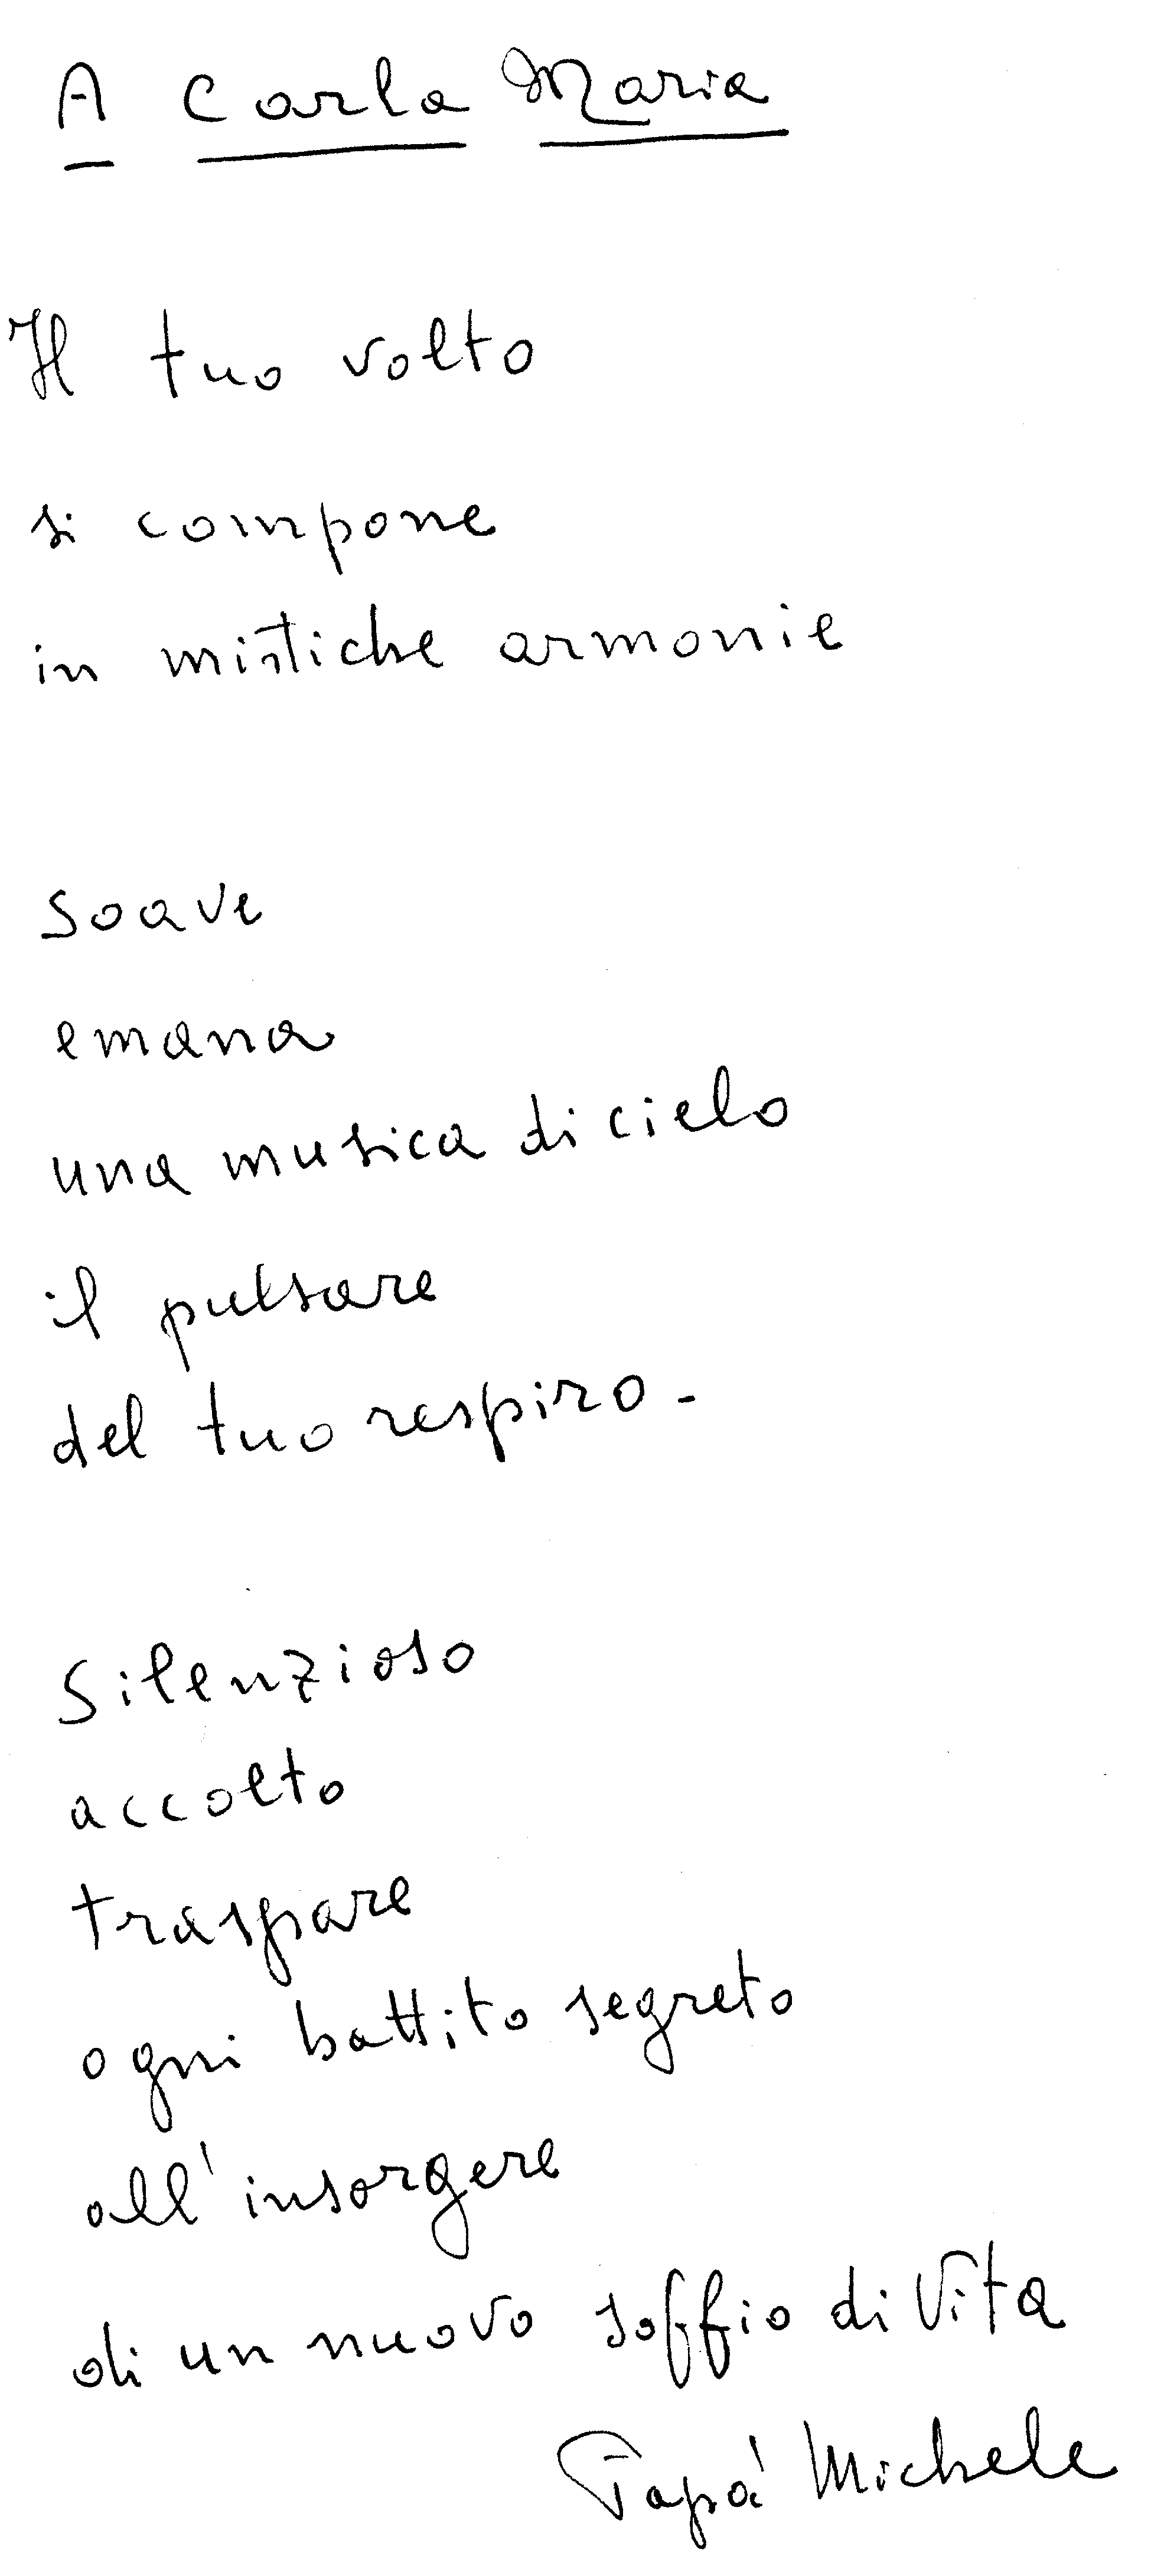 A Carla Maria
Il tuo volto
si compone
in mistiche armonie
soave
emana
una musica di cielo
il pulsare
del tuo respiro -
Silenzioso
accolto
traspare
ogni battito segreto
all'insorgere
di un nuovo soffio di Vita
Papà Michele